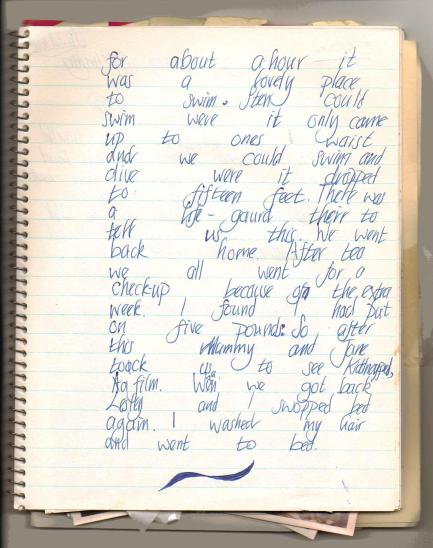 for about a hour it
was a lovely place
to swim. Sten could
swim were it only came
up to ones waist
and we could swim and
dive were it dropped
to fifteen feet. There was
a life-gaurd their to
tell us this. We went
back home. After tea
we all went for a
checkup because of the extra
week. I found I had put
on five pounds. So after
this Mummy and Jane
toock us to see Kidnapped,
film. we got back
Lesley and I swopped bed
again. I washed my hair
and went to bed.